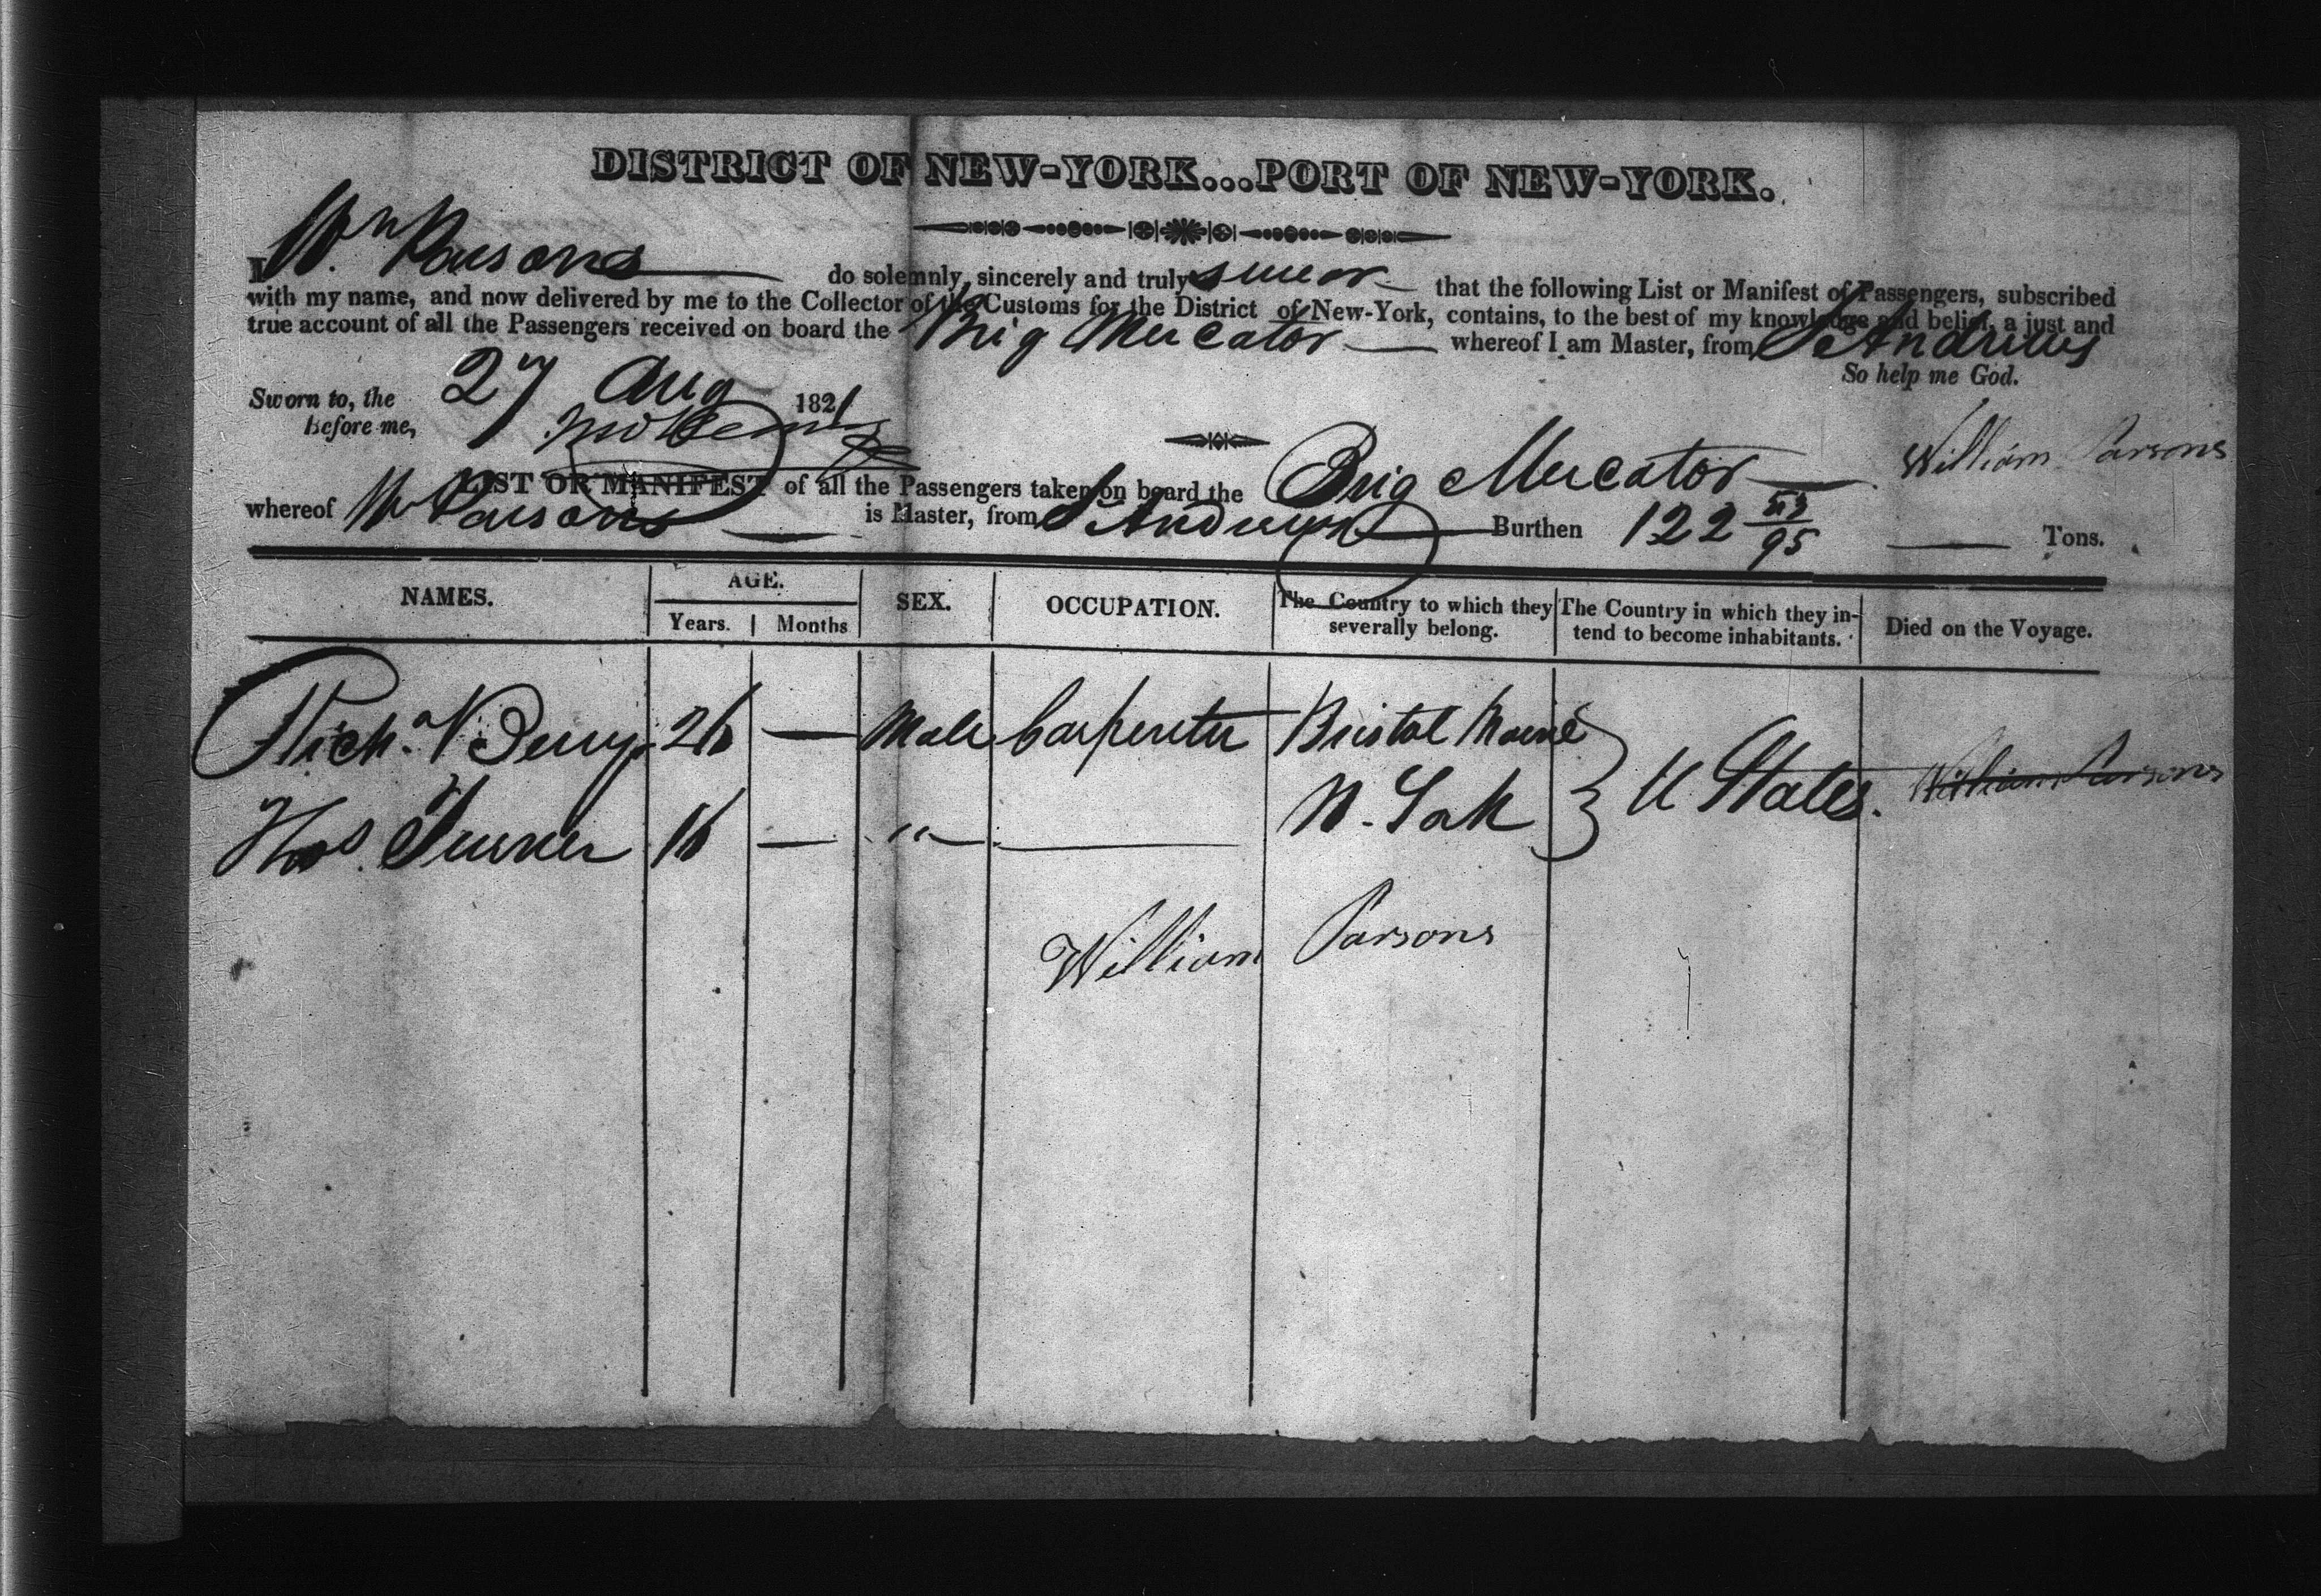 DISTRICT OF NEW-YORK...PORT OF NEW-YORK.
I Wm Parsons do solemnly, sincerely and truly swear that the following List or Manifest of Passengers, subscribed
with my name, and now delivered by me to the Collector of the Customs for the District of New-York, contains, to the best of my knowledge and belief, a just and
true account of all the Passengers received on board the Brig Mercator whereof I am Master, from St Andrews
So help me God.
Sworn to, the 27 Aug 1821
Before me,
William Parsons
LIST OR MANIFEST of all the Passengers taken on board the Brig Mercator
whereof Wm Parsons is Master, from St Andrews Burthen 122 53/95 Tons.
NAMES. AGE. SEX. OCCUPATION. The Country to which they severally belong. The Country in which they intend to become inhabitants. Died on the Voyage.
Years. Months
Richd Berry 26 — Male Carpenter Bristol Maine
U States. William Parsons
Thos. Turner 16 — " — N. York
William Parsons